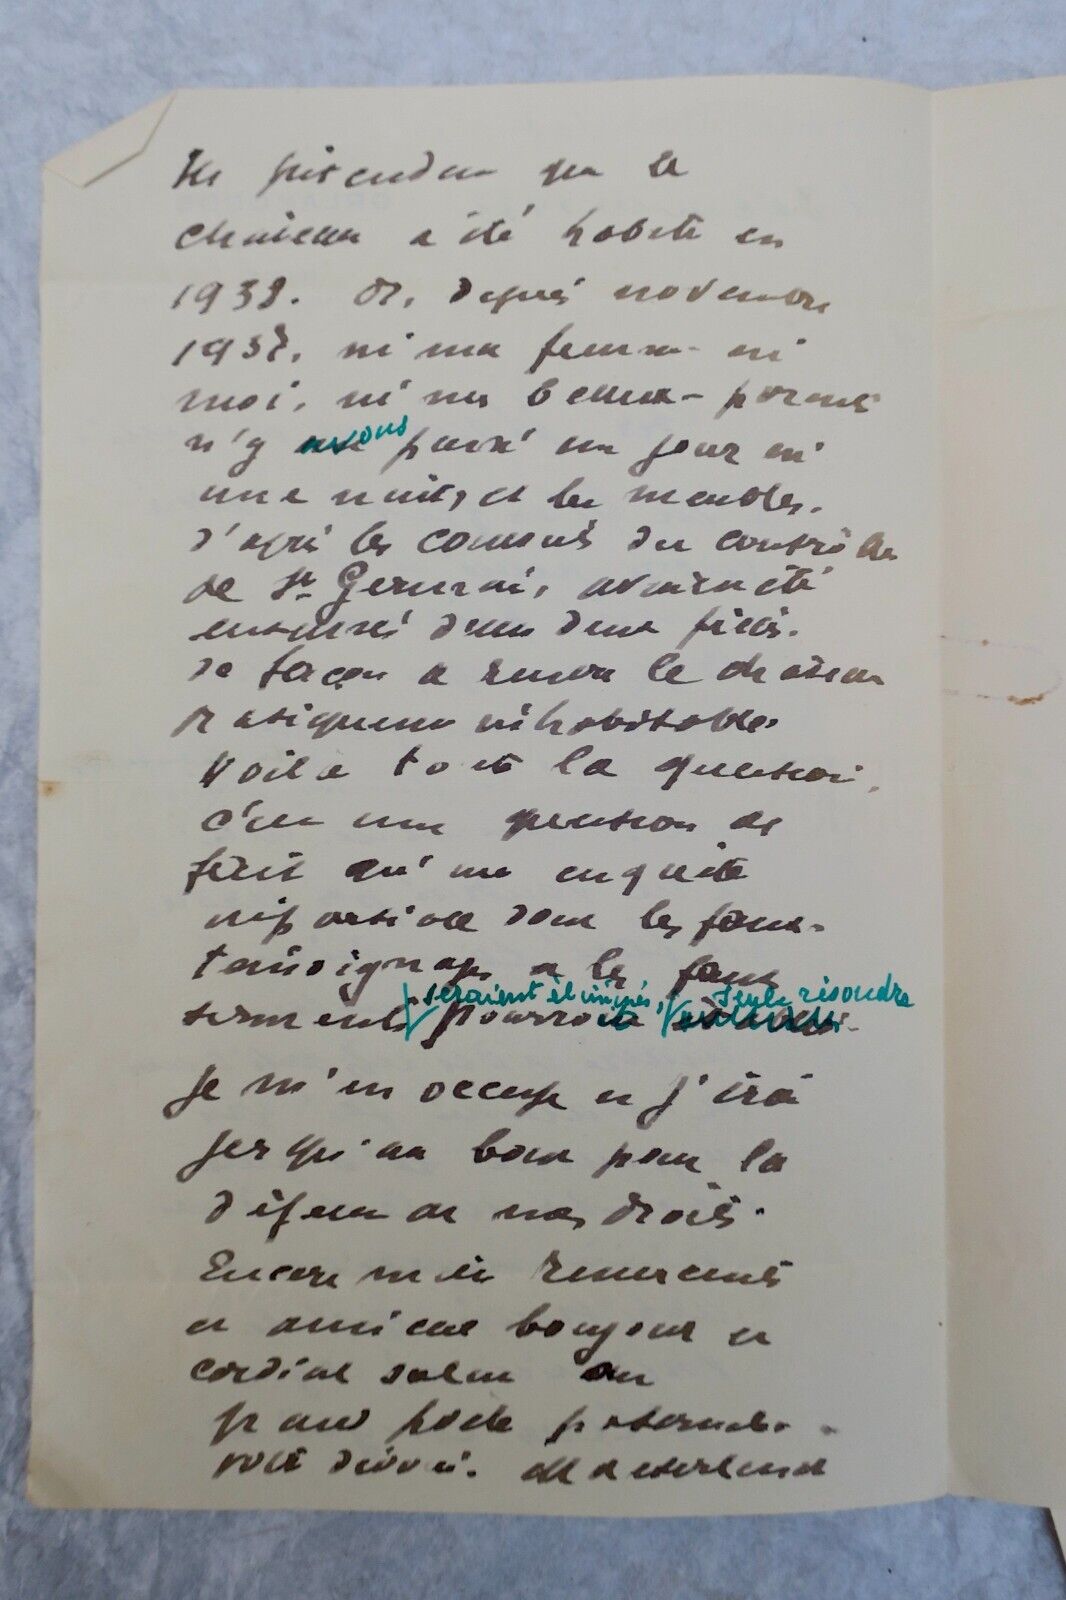 Ils prétendent que le
chateau a été habité en
1938. Or, depuis novembre
1937, ni ma femme ni
moi, ni mes beaux-parents
n'y avons passé un jour ni
une nuit, et les meubles,
d'après les du contrôle
de St Germain, avaient été
entassés dans deux pièces.
de façon a rendre le chateau
pratiquement inhabitable.
Voila toute la question,
c'est une question de
fait qu'une enquête
impartiale dont les faux-
témoignages et les faux
serments seraient éliminés, pourrait seule résoudre
Je m'en occupe et j'irai
jusqu'au bout pour la
défense de nos droits.
Encore merci
et amical bonjour et
cordial salut au
grand poète paternel.
votre dévoué. Maeterlinck